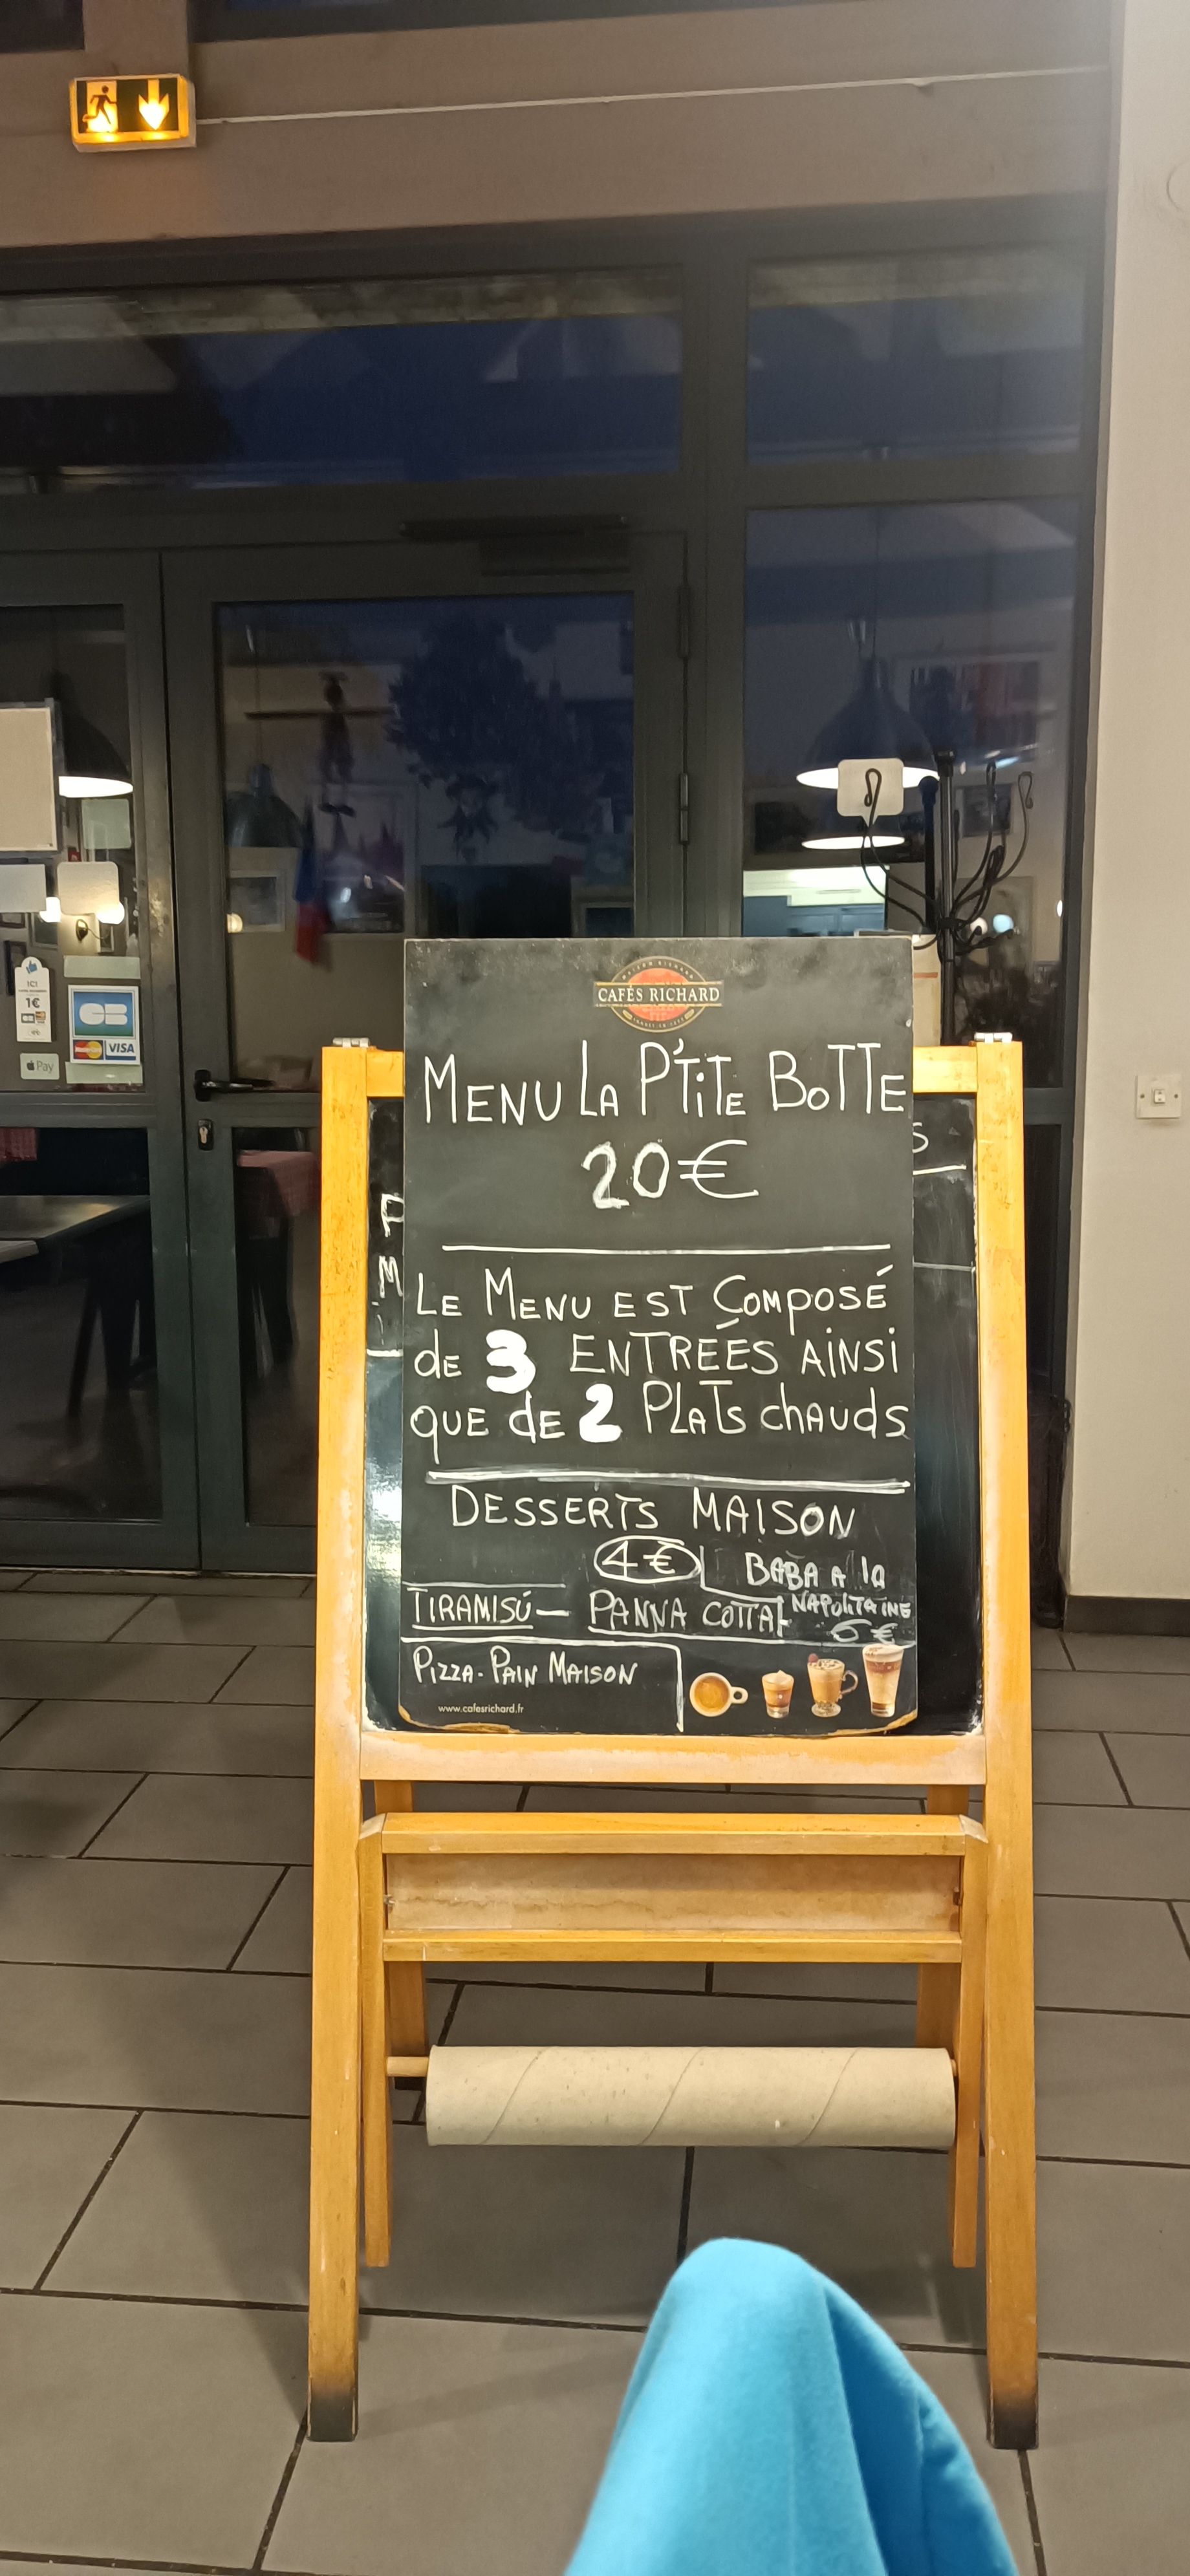 CAFÉS RICHARD
MENU LA P'TITE BOTTE
20€
LE MENU EST COMPOSÉ
de 3 ENTRÉES AINSI
QUE de 2 PLATS chAUds
DESSERTS MAISON
4€
BABA A la
NAPOLITAINE
6€
TIRAMISÚ — PANNA COTTA
PIZZA - PAIN MAISON
www.cafesrichard.fr
ICI
1€
CB
VISA
Pay
S
M